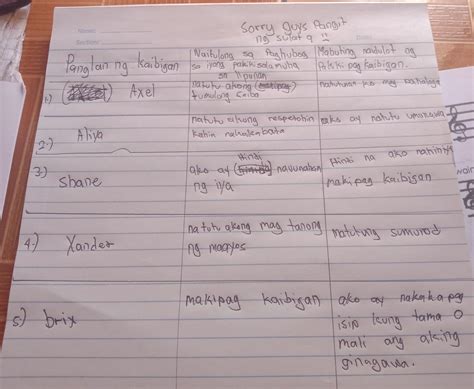 Name:
Section:
Sorry Guys Pangit
ng sulat q
Panglan ng kaibigan
Naitulong sa Paghubog
sa iyong pakikisalamuha
sa lipunan
Mabuting naidulot ng
Pakikipagkaibigan.
1.) Axel
natutu akong
tumulong sa iba
natutunan ko mag
2.) Aliya
natutu akung respetohin
kahin nahalembata
ako ay natutu
3.) Shane
Hindi
ako ay navunahan
ng iya
Hindi na ako nahihiya
makipag kaibigan
4.) Xander
natutu akong mag tanong
ng maayos
natutung sumunod
5.) brix
makipag kaibigan
ako ay nakakapag
isip kung tama o
mali ang aking
ginagawa.